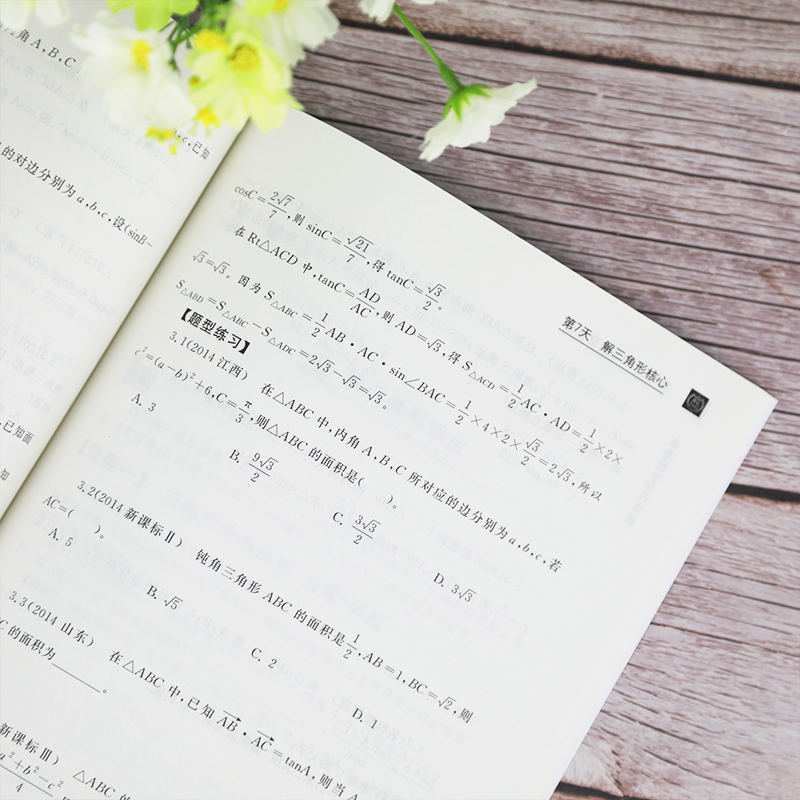 角 A,B,C
,c,已知
的对边分别为 a,b,c,设(sinB−
,已知面
知
第7天 解三角形核心
cosC=2√7/7,则 sinC=√21/7,得 tanC=√3/2。
在 Rt△ACD 中,tanC=AD/AC,则 AD=√3,得 S△ACD=1/2AC·AD=1/2×2×
√3=√3。因为 S△ABC=1/2AB·AC·sin∠BAC=1/2×4×2×√3/2=2√3,所以
S△ABD=S△ABC−S△ADC=2√3−√3=√3。
【题型练习】
3.1(2014江西) 在△ABC 中,内角 A,B,C 所对应的边分别为 a,b,c,若
c²=(a−b)²+6,C=π/3,则△ABC 的面积是( )。
A. 3 B. 9√3/2 C. 3√3/2 D. 3√3
3.2(2014新课标Ⅱ) 钝角三角形 ABC 的面积是1/2,AB=1,BC=√2,则
AC=( )。
A. 5 B. √5 C. 2 D. 1
3.3(2014山东) 在△ABC 中,已知 AB→·AC→=tanA,则当 A
C 的面积为______。
新课标Ⅲ) △ABC 的
a²+b²−c²/4